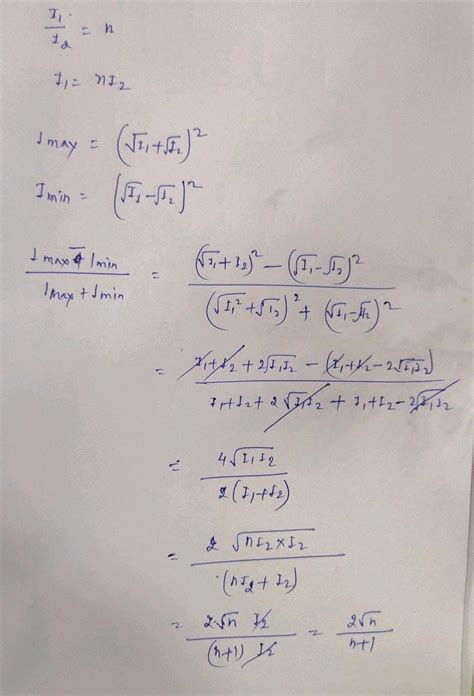 I₁/I₂ = n
I₁ = nI₂
Imax = (√I₁+√I₂)²
Imin = (√I₁-√I₂)²
(Imax - Imin)/(Imax + Imin) = ((√I₁+I₂)² - (√I₁-√I₂)²)/((√I₁²+√I₂)² + (√I₁-√I₂)²)
= (I₁+I₂+2√I₁I₂ - (I₁+I₂-2√I₁I₂))/(I₁+I₂+2√I₁I₂ + I₁+I₂-2√I₁I₂)
= 4√I₁I₂/2(I₁+I₂)
= 2√nI₂×I₂/(nI₂+I₂)
= 2√n I₂/(n+1) I₂ = 2√n/n+1